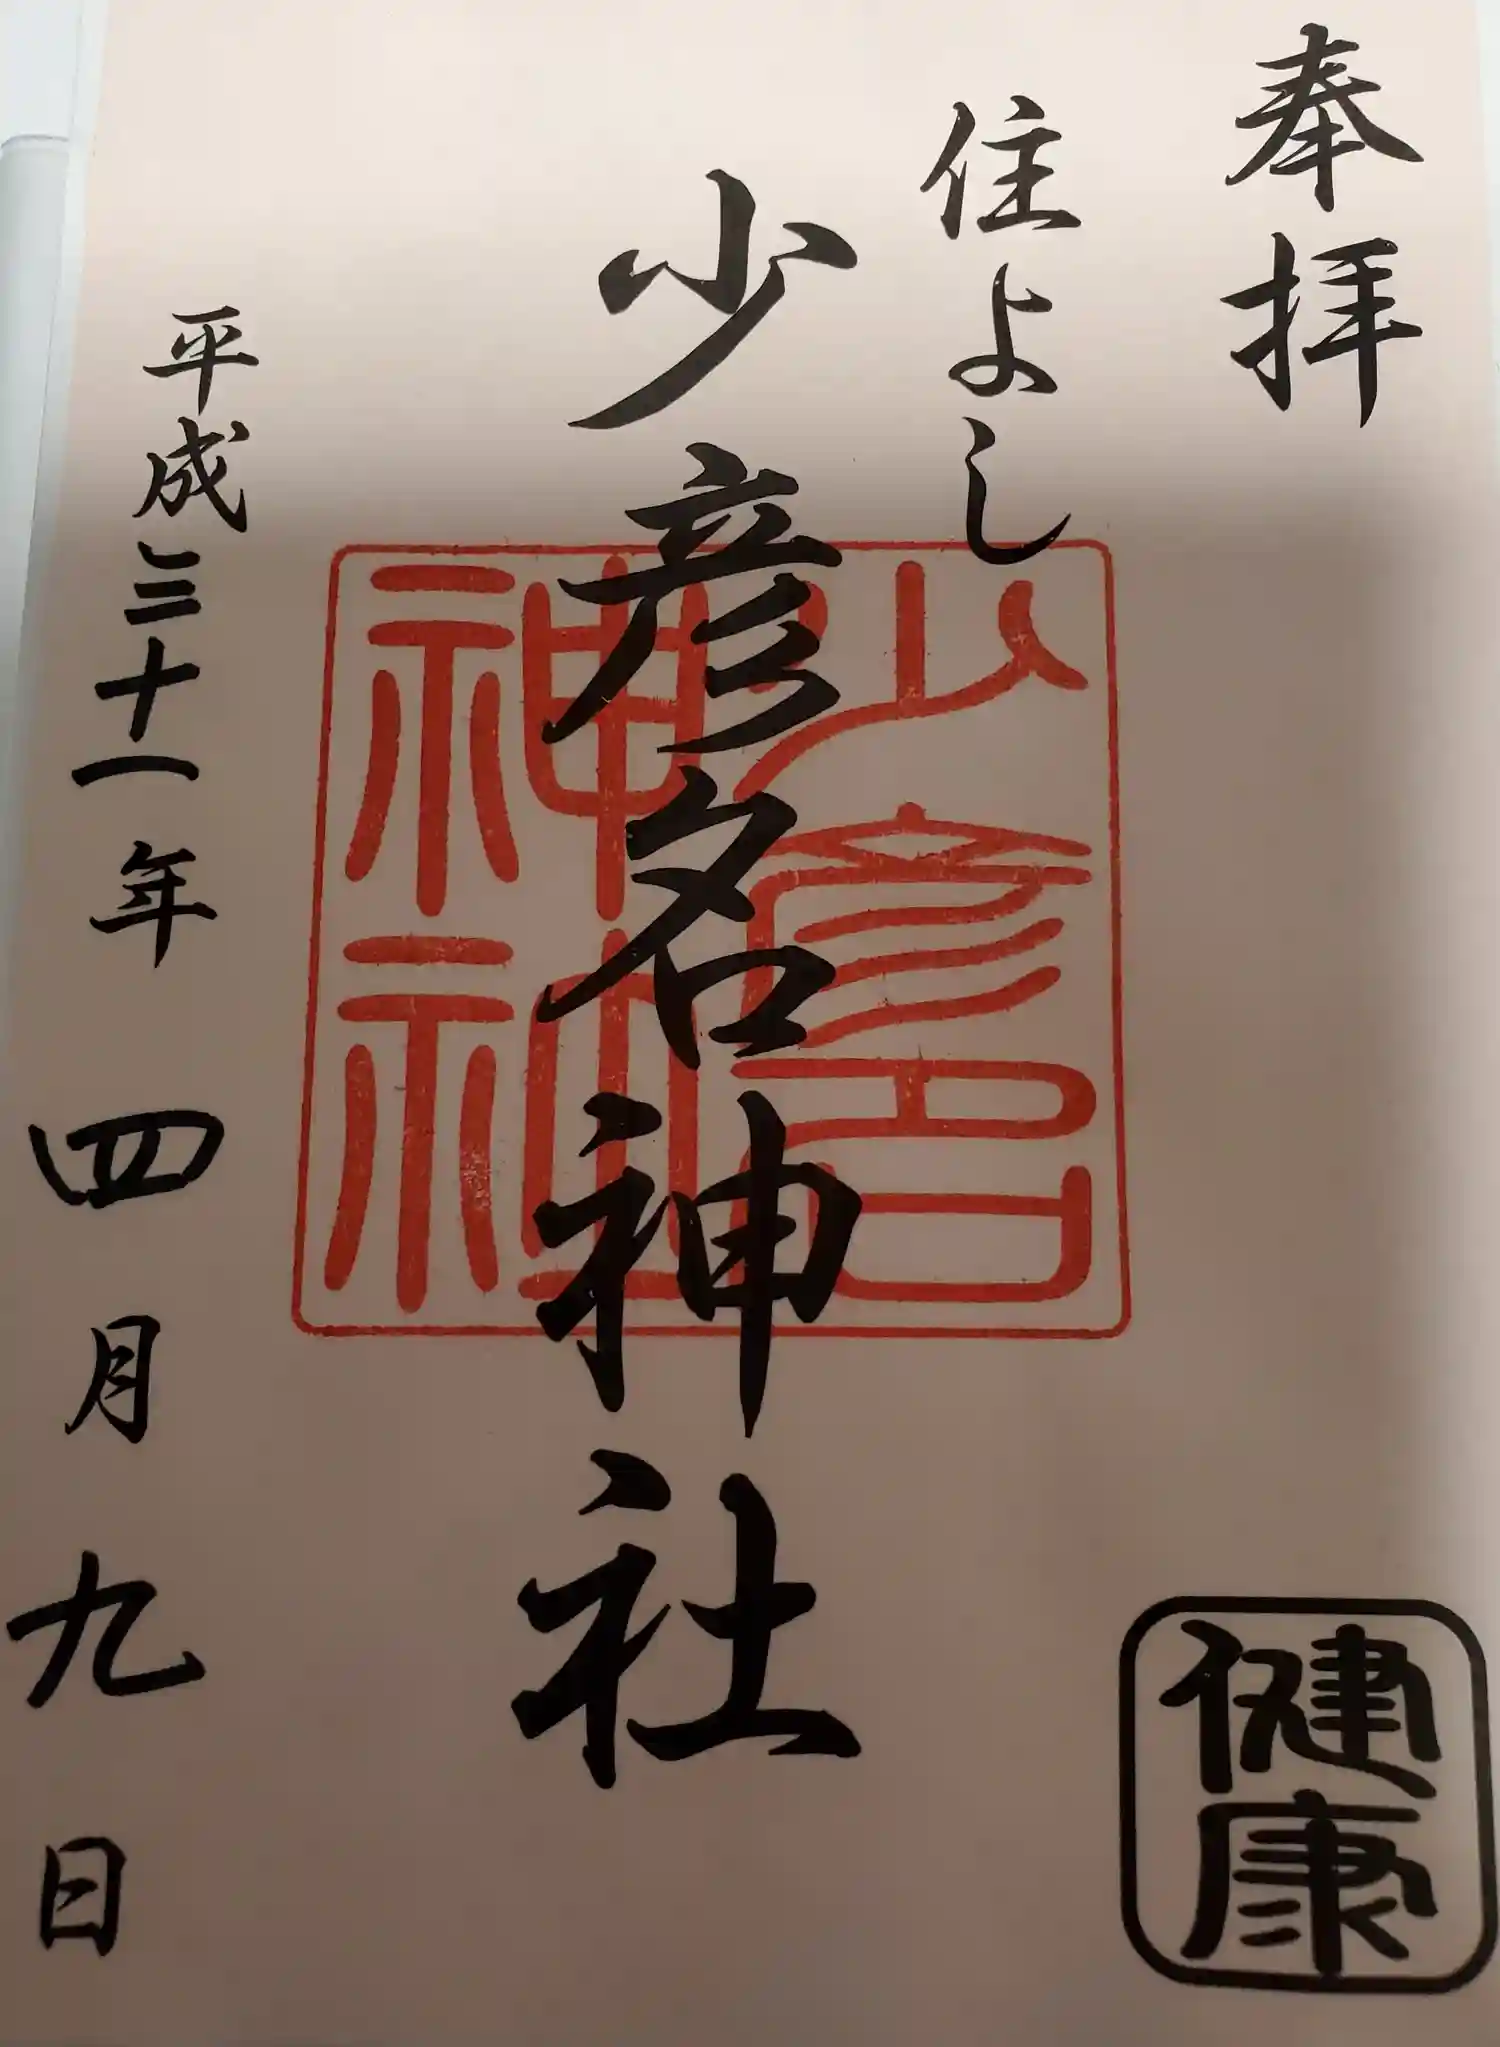 奉拝
住よし
少彦名神社
少彦名
神社
平成三十一年 四月九日
健康